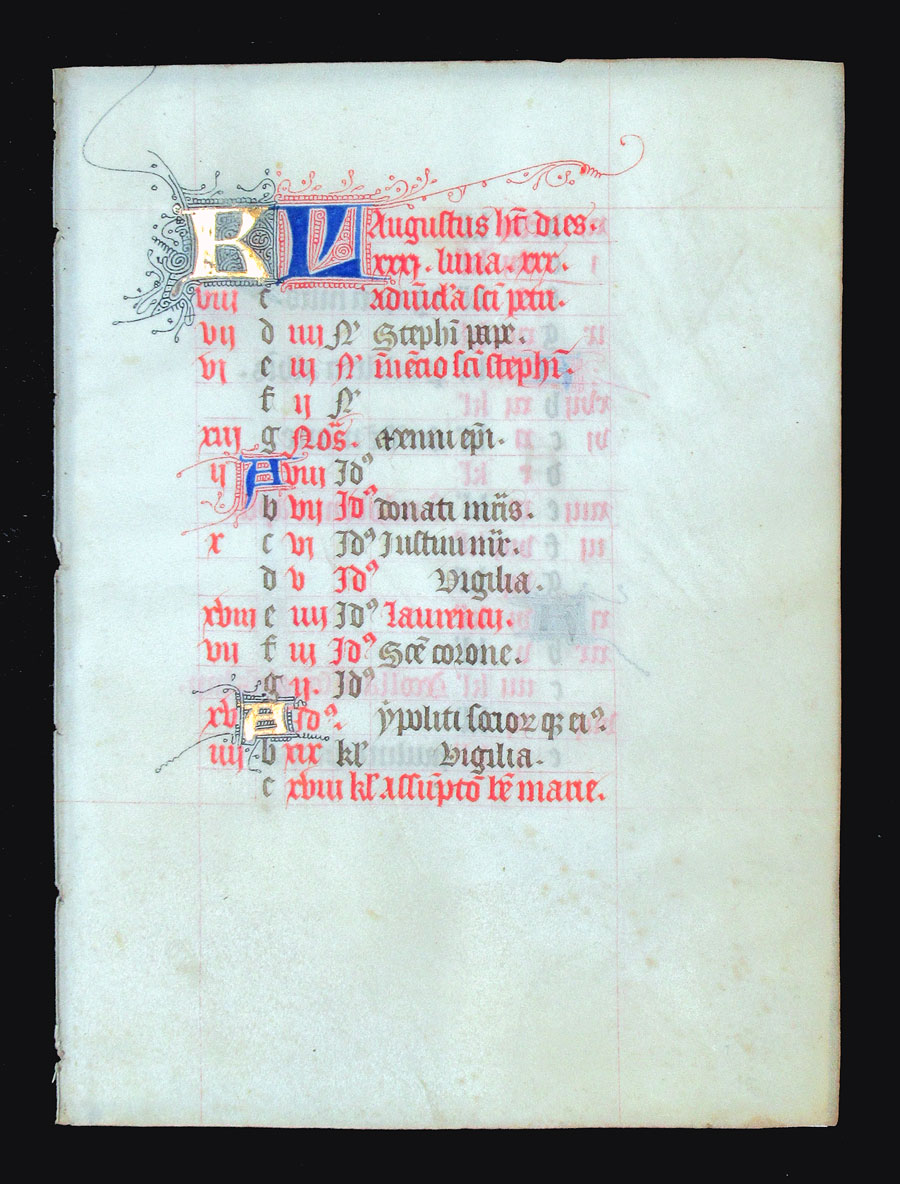 KL Augustus ht̄ dies.
xxxi. luna. xxx.
viii c ad uīcl'a sci petri.
vii d iiii N' Stephi pape.
vi e iii N' Inuēcio sci stephī.
f ii N'
xiii g Noš. exenni epī.
ii A viii Id⁹
b vii Id⁹ donati mrīs.
x c vi Id⁹ Iustini mr̄.
d v Id⁹ Vigilia.
xviii e iiii Id⁹ Laurēncij.
vii f iii Id⁹ Scē corone.
g ii. Id⁹
xv A Id⁹. ẏpoliti socioꝝ qȝ ei⁹.
iiii b xix kl' Vigilia.
c xviii kl' Assūptō bē marie.